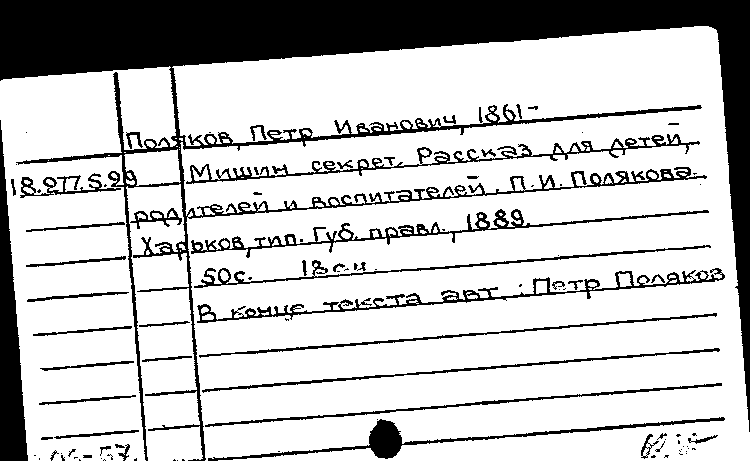 Поляков, Петр Иванович, 1861-
18.277.5.29 Мишин секрет. Рассказ для детей,
родителей и воспитателей. П.И. Полякова.
Харьков, тип. Губ. правл., 1889.
50с. 18см.
В конце текста авт.: Петр Поляков